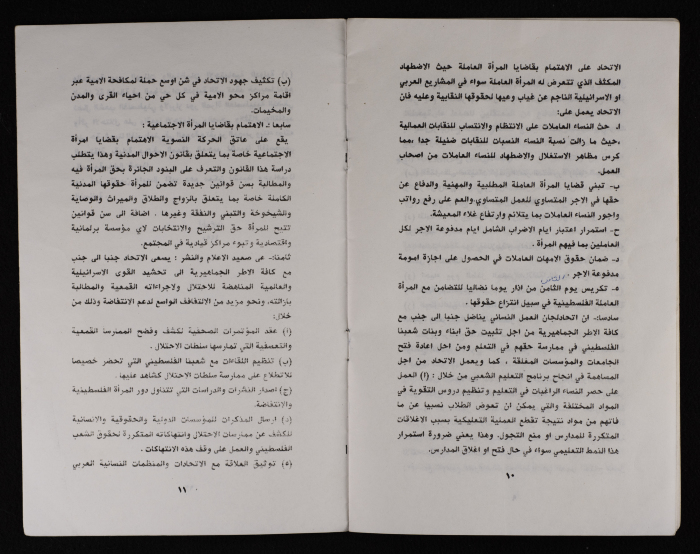 الاتحاد على الاهتمام بقضايا المرأة العاملة حيث الاضطهاد
المكثف الذي تتعرض له المرأة العاملة سواء في المشاريع العربي
او الاسرائيلية الناجم عن غياب وعيها لحقوقها النقابية وعليه فان
الاتحاد يعمل على:
ا- حث النساء العاملات على الانتظام والانتساب للنقابات العمالية
،حيث ما زالت نسبة النساء النسبات للنقابات ضئيلة جدا ،مما
كرس مظاهر الاستغلال والاضطهاد للنساء العاملات من اصحاب
العمل.
ب- تبني قضايا المرأة العاملة المطلبية والمهنية والدفاع عن
حقها في الاجر المتساوي للعمل المتساوي.والعم على رفع رواتب
واجور النساء العاملات بما يتلائم وارتفاع غلاء المعيشة.
ح- استمرار اعتبار ايام الاضراب الشامل ايام مدفوعة الاجر لكل
العاملين بما فيهم المرأة .
د- ضمان حقوق الامهات العاملات في الحصول على اجازة امومة
مدفوعة الاجر .
الثامن
ه- تكريس يوم الثامن من اذار يوما نضاليا للتضامن مع المرأة
العاملة الفلسطينية في سبيل انتزاع حقوقها .
سادسا:- ان اتحادلجان العمل النسائي يناضل جنبا الى جنب مع
كافة الاطر الجماهيرية من اجل تثبيت حق ابناء وبنات شعبنا
الفلسطيني في ممارسة حقهم في التعلم ومن اجل اعادة فتح
الجامعات والمؤسسات المغلقة ، كما ويعمل الاتحاد من اجل
المساهمة في انجاح برنامج التعليم الشعبي من خلال : (ا) العمل
على حصر النساء الراغبات في التعليم وتنظيم دروس التقوية في
المواد المختلفة والتي يمكن ان تعوض الطلاب نسبيا عن ما
فاتهم من مواد نتيجة تقطع العملية التعليمية بسبب الاغلاقات
المتكررة للمدارس او منع التجول. وهذا يعني ضرورة استمرار
هذا النمط التعليمي سواء في حال فتح او اغلاق المدارس.
١٠
(ب) تكثيف جهود الاتحاد في شن اوسع حملة لمكافحة الامية عبر
اقامة مراكز محو الامية في كل حي من احياء القرى والمدن
والمخيمات.
سابعا :ـ الاهتمام بقضايا المرأة الاجتماعية :
يقع على عاتق الحركة النسوية الاهتمام بقضايا امرأة
الاجتماعية خاصة بما يتعلق بقانون الاحوال المدنية وهذا يتطلب
دراسة هذا القانون والتعرف على البنود الجائرة بحق المرأة فيه
والمطالبة بسن قوانين جديدة تضمن للمرأة حقوقها المدنية
الكاملة خاصة بما يتعلق بالزواج والطلاق والميراث والوصاية
والشيخوخة والتبني والنفقة وغيرها . اضافة الى سن قوانين
تتيح للمرأة حق الترشيح والانتخابات لاي مؤسسة برلمانية
واقتصادية وتبوء مراكز قيادية في المجتمع.
ثامنا:- على صعيد الاعلام والنشر : يسعى الاتحاد جنبا الى جنب
مع كافة الاطر الجماهيرية الى تحشيد القوى الاسرائيلية
والعالمية المناهضة للاحتلال ولاجراءاته القمعية والمطالبة
بازالته، ونحو مزيد من الالتفافف الواسع لدعم الانتفاضة وذلك من
خلال:
(ا) عقد المؤتمرات الصحفية لكشف وفضح الممرسا القمعية
والتعسفية التي تمارسها سلطات الاحتلال .
(ب) تنظيم اللقاءات مع شعبنا الفلسطيني التي تحضر خصيصا
للاطلاع على ممارسة سلطات الاحتلال كشاهد عليها .
(ج) اصدار النشرات والدراسات التي تتناول دور المرأة الفلسطينية
والانتفاضة.
(د) ارسال المذكرات للمؤسسات الدولية والحقوقية والانسانية
للكشف عن ممارسات الاحتلال وانتهاكاته المتكررة لحقوق الشعب
الفلسطيني والعمل على وقف هذه الانتهاكات .
(ه) توثيق العلاقة مع الاتحادات والمنظمات النسائية العربي
١١